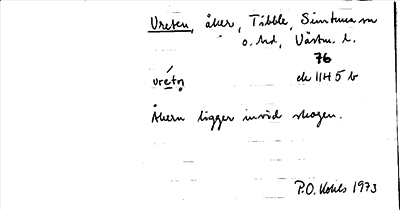 Vreten, åker, Tibble, Simtuna sn
o. hd, Västm. l.
76
vrétņ ek 11H 5 b
Åkern ligger invid skogen.
P.O. 1973